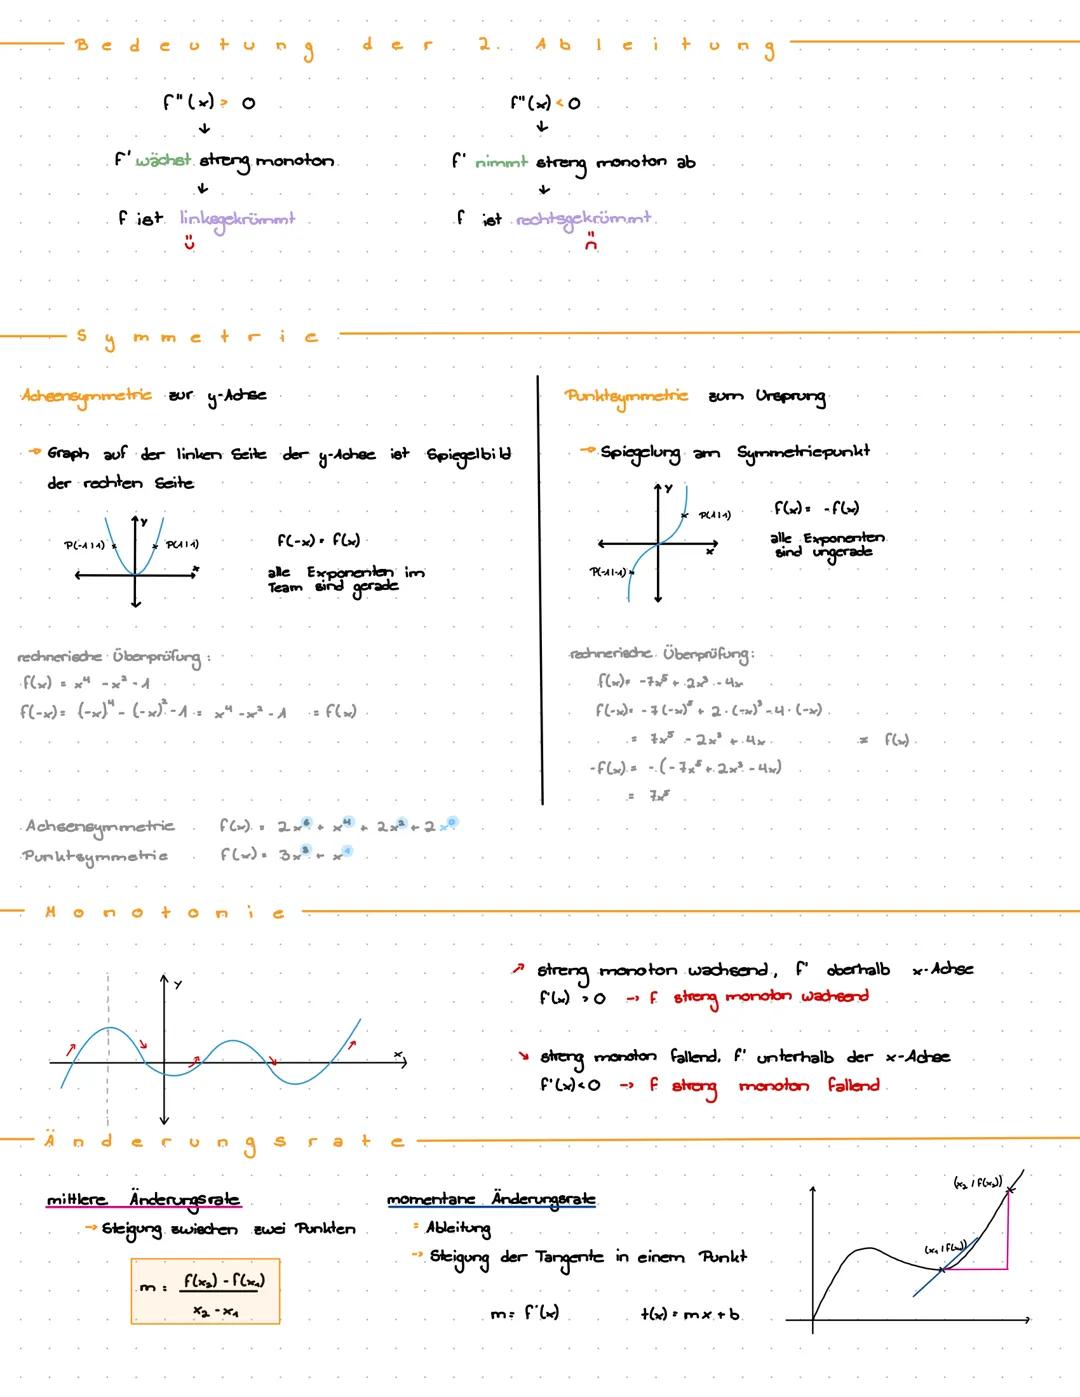 Bedeutung der 2. Ableitung
f''(x) > 0
↓
f' wächst streng monoton
↓
f ist linksgekrümmt
f''(x) < 0
↓
f' nimmt streng monoton ab
↓
f ist rechtsgekrümmt
Symmetrie
Achsensymmetrie zur y-Achse
→ Graph auf der linken Seite der y-Achse ist Spiegelbild
der rechten Seite
y
P(-1|1)
P(1|1)
x
f(-x) = f(x)
alle Exponenten im
Team sind gerade
rechnerische Überprüfung:
f(x) = x⁴ - x² - 1
f(-x) = (-x)⁴ - (-x)² - 1 = x⁴ - x² - 1 = f(x)
Punktsymmetrie zum Ursprung
→ Spiegelung am Symmetriepunkt
y
P(1|1)
x
P(-1|-1)
f(x) = -f(x)
alle Exponenten
sind ungerade
rechnerische Überprüfung:
f(x) = -7x⁵ + 2x³ - 4x
f(-x) = -7(-x)⁵ + 2·(-x)³ - 4·(-x)
= 7x⁵ - 2x³ + 4x ≠ f(x)
-f(x) = -(-7x⁵ + 2x³ - 4x)
= 7x⁵
Achsensymmetrie f(x) = 2x⁶ + x⁴ + 2x² + 2x⁰
Punktsymmetrie f(x) = 3x³ + x¹
Monotonie
y
x
↗ streng monoton wachsend, f' oberhalb x-Achse
f'(x) > 0 → f streng monoton wachsend
↘ streng monoton fallend, f' unterhalb der x-Achse
f'(x) < 0 → f streng monoton fallend
Änderungsrate
mittlere Änderungsrate
→ Steigung zwischen zwei Punkten
m = f(x₂) - f(x₁)
x₂ - x₁
momentane Änderungsrate
= Ableitung
→ Steigung der Tangente in einem Punkt
m = f'(x) t(x) = mx + b
(x₂ | f(x₂))
(x₁ | f(x₁))